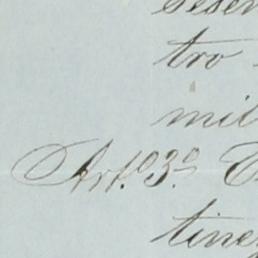 tro
mil
Art.º 3.º E
tine